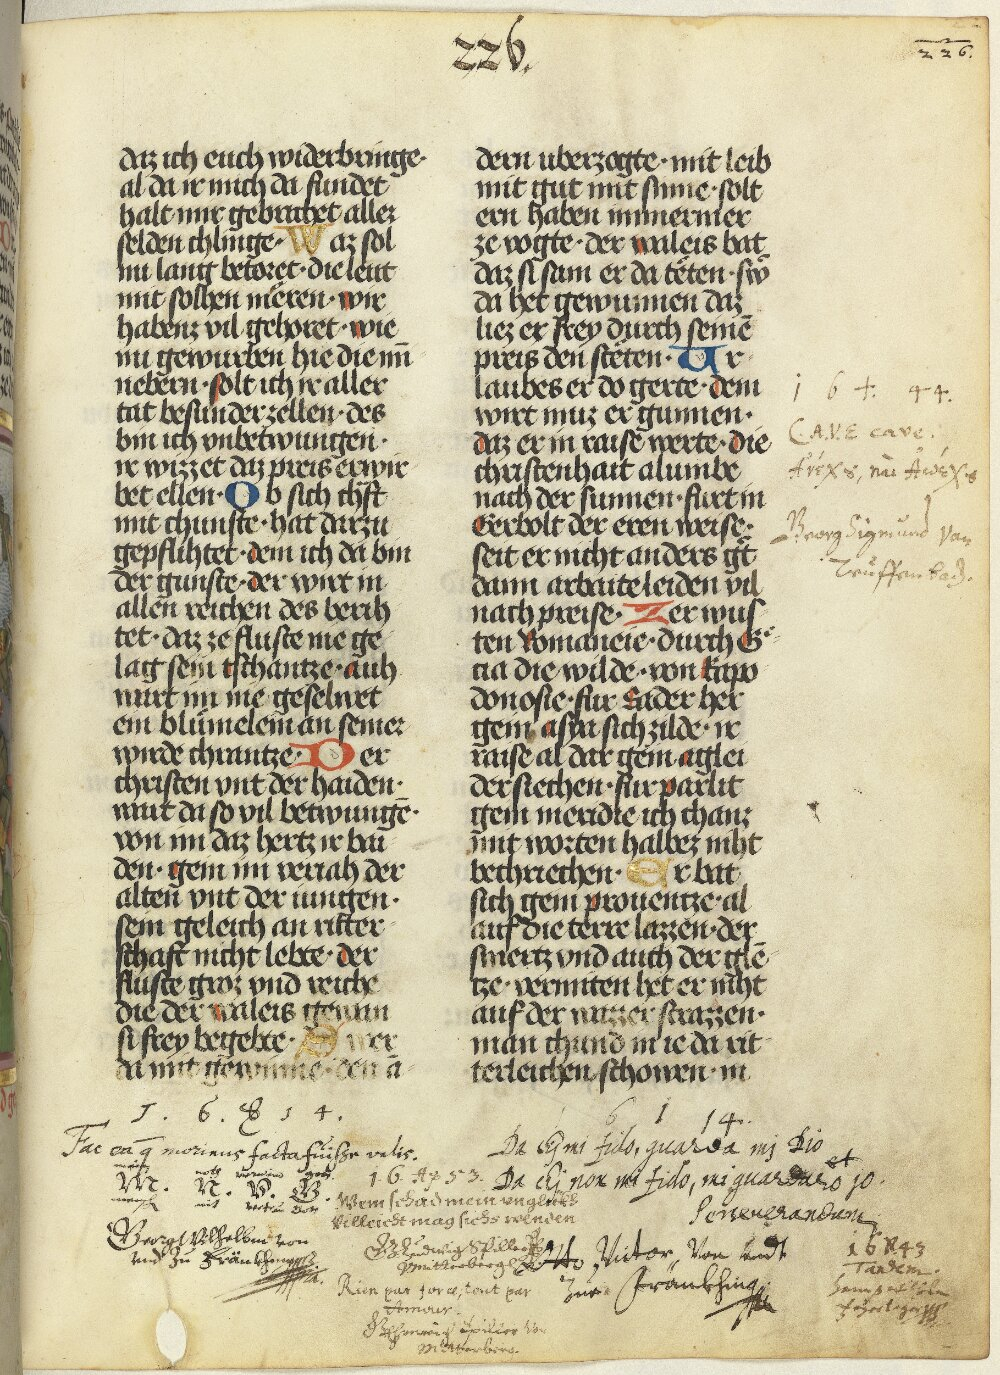 226.
226.
daz ich euch widerbringe·
al da ir mich da fundet
halt mir gebraitet aller
selden chlinge· Waz sol
nu lang betoret· die leut
mit solhen meren· wir
habenz vil gehoret· wie
nu gewurben hie die mī
nebern· solt ich ir aller
tat besunder zellen· des
bin ich vnbetwungen·
ir wizzet daz preis erwir
bet ellen· Ob sich chūst
mit chunste· hat darzu
gepflihtet· dem ich da bin
der gunste· der wirt in
allen reichen des berih
tet· daz ze fluste nie ge
lag sein tschantze· auh
wart im nie geselwet
ein blůmelein an seiner
wirde chrantze· Der
christen vnt der haiden·
wart da so vil betwungē·
von im daz hertz ir bai
den· gein im veriah der
alten vnt der iungen·
sein geleich an ritter
schaft nicht lebte· der
fluste groz vnd reiche
die der waleis gewan
si frey begebte· Swer
da mit gewinne· den ā
dern uberzogte· mit leib
mit gut mit sinne· solt
ern haben immermer
ze vogte· der waleis bat
daz si sam er da téten· swo
da het gewunnen daz
liez er frey durch seinē
preis den stéten· Ur
laubes er do gerte· dem
wirt muz er gunnen·
daz er in raise werte· die
christenhait alumbe
nach der sunnen· fůrt in
Gerbolt der eren weise·
seit er nicht anders gt
dann arbaite leiden vil
nach preise· Zer wus
ten Romaneie· durch G
cia die wilde· von kapo
donosie· fur Lader her
gein asya sich zilde· ir
raise al dar gein aglei
der siechen· fur parlit
gein meridie ich chanz
mit worten halbez niht
bechriechen· Er bat
sich gein prouentze· al
auf die terre lazzen· der
swertz vnd auch der glē
tze· vermiten het er niht
auf der wazzer strazzen·
man chund in ie da rit
terleichen schowen· in
1 6 4. 44.
CAVE cave.
Georg Sigmund Von
1. 6. 1 4.
Fac ea q̄ moriens facta fuisse velis.
M. N. V. G.
Georg Wilhelbm von
vnd zu Fränkhing
16 53.
Wem schad mein vnglükh
Villeicht mag sichs wenden
Ludwig Spiller
V Mitterberg
Rien par force, tout par
Amour.
Spiller Vo
Mitterberg.
6 1 14.
Da chi mi fido, guarda mj Dio
Da chj non mi fido, mi guardaro jo. et
Perseverandum
Otto, Victor, Von vndt
Zue Fränkhing
16 43
Tandem.